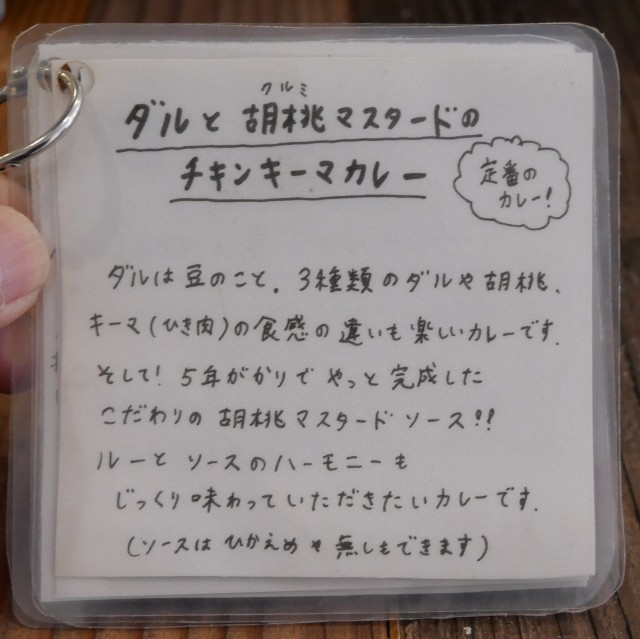 クルミ
ダルと 胡桃マスタードの
チキンキーマカレー
定番の
カレー!
ダルは豆のこと。3種類のダルや胡桃、
キーマ(ひき肉)の食感の違いも楽しいカレーです。
そして! 5年がかりで やっと 完成した
こだわりの 胡桃マスタードソース!!
ルーと ソースのハーモニーも
じっくり味わっていただきたいカレーです。
(ソースは ひかえめや無しもできます)